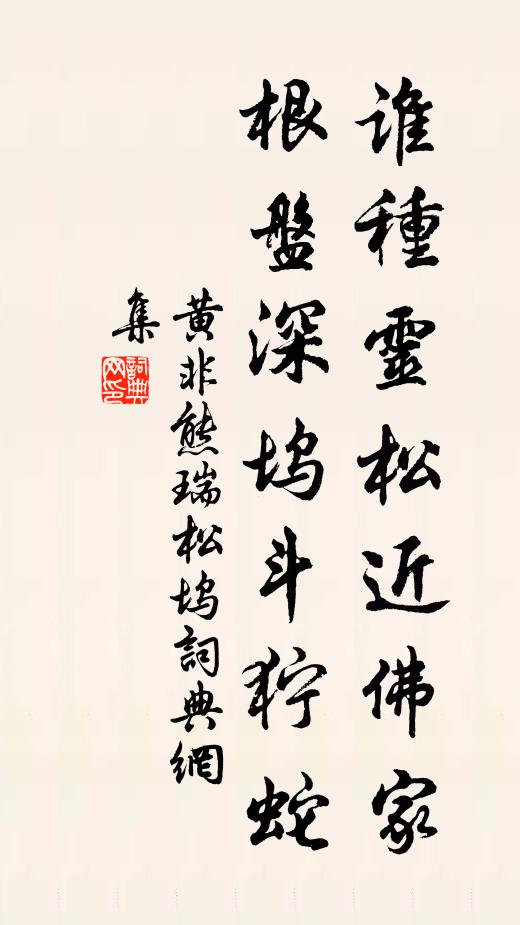 誰種靈松近佛家
根盤深塢斗狞蛇
黄非熊瑞松塢詞典網
集
詞典
网印